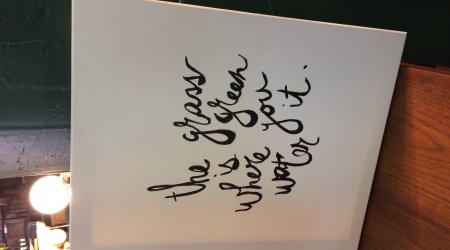 the grass
is green
where you
water it.